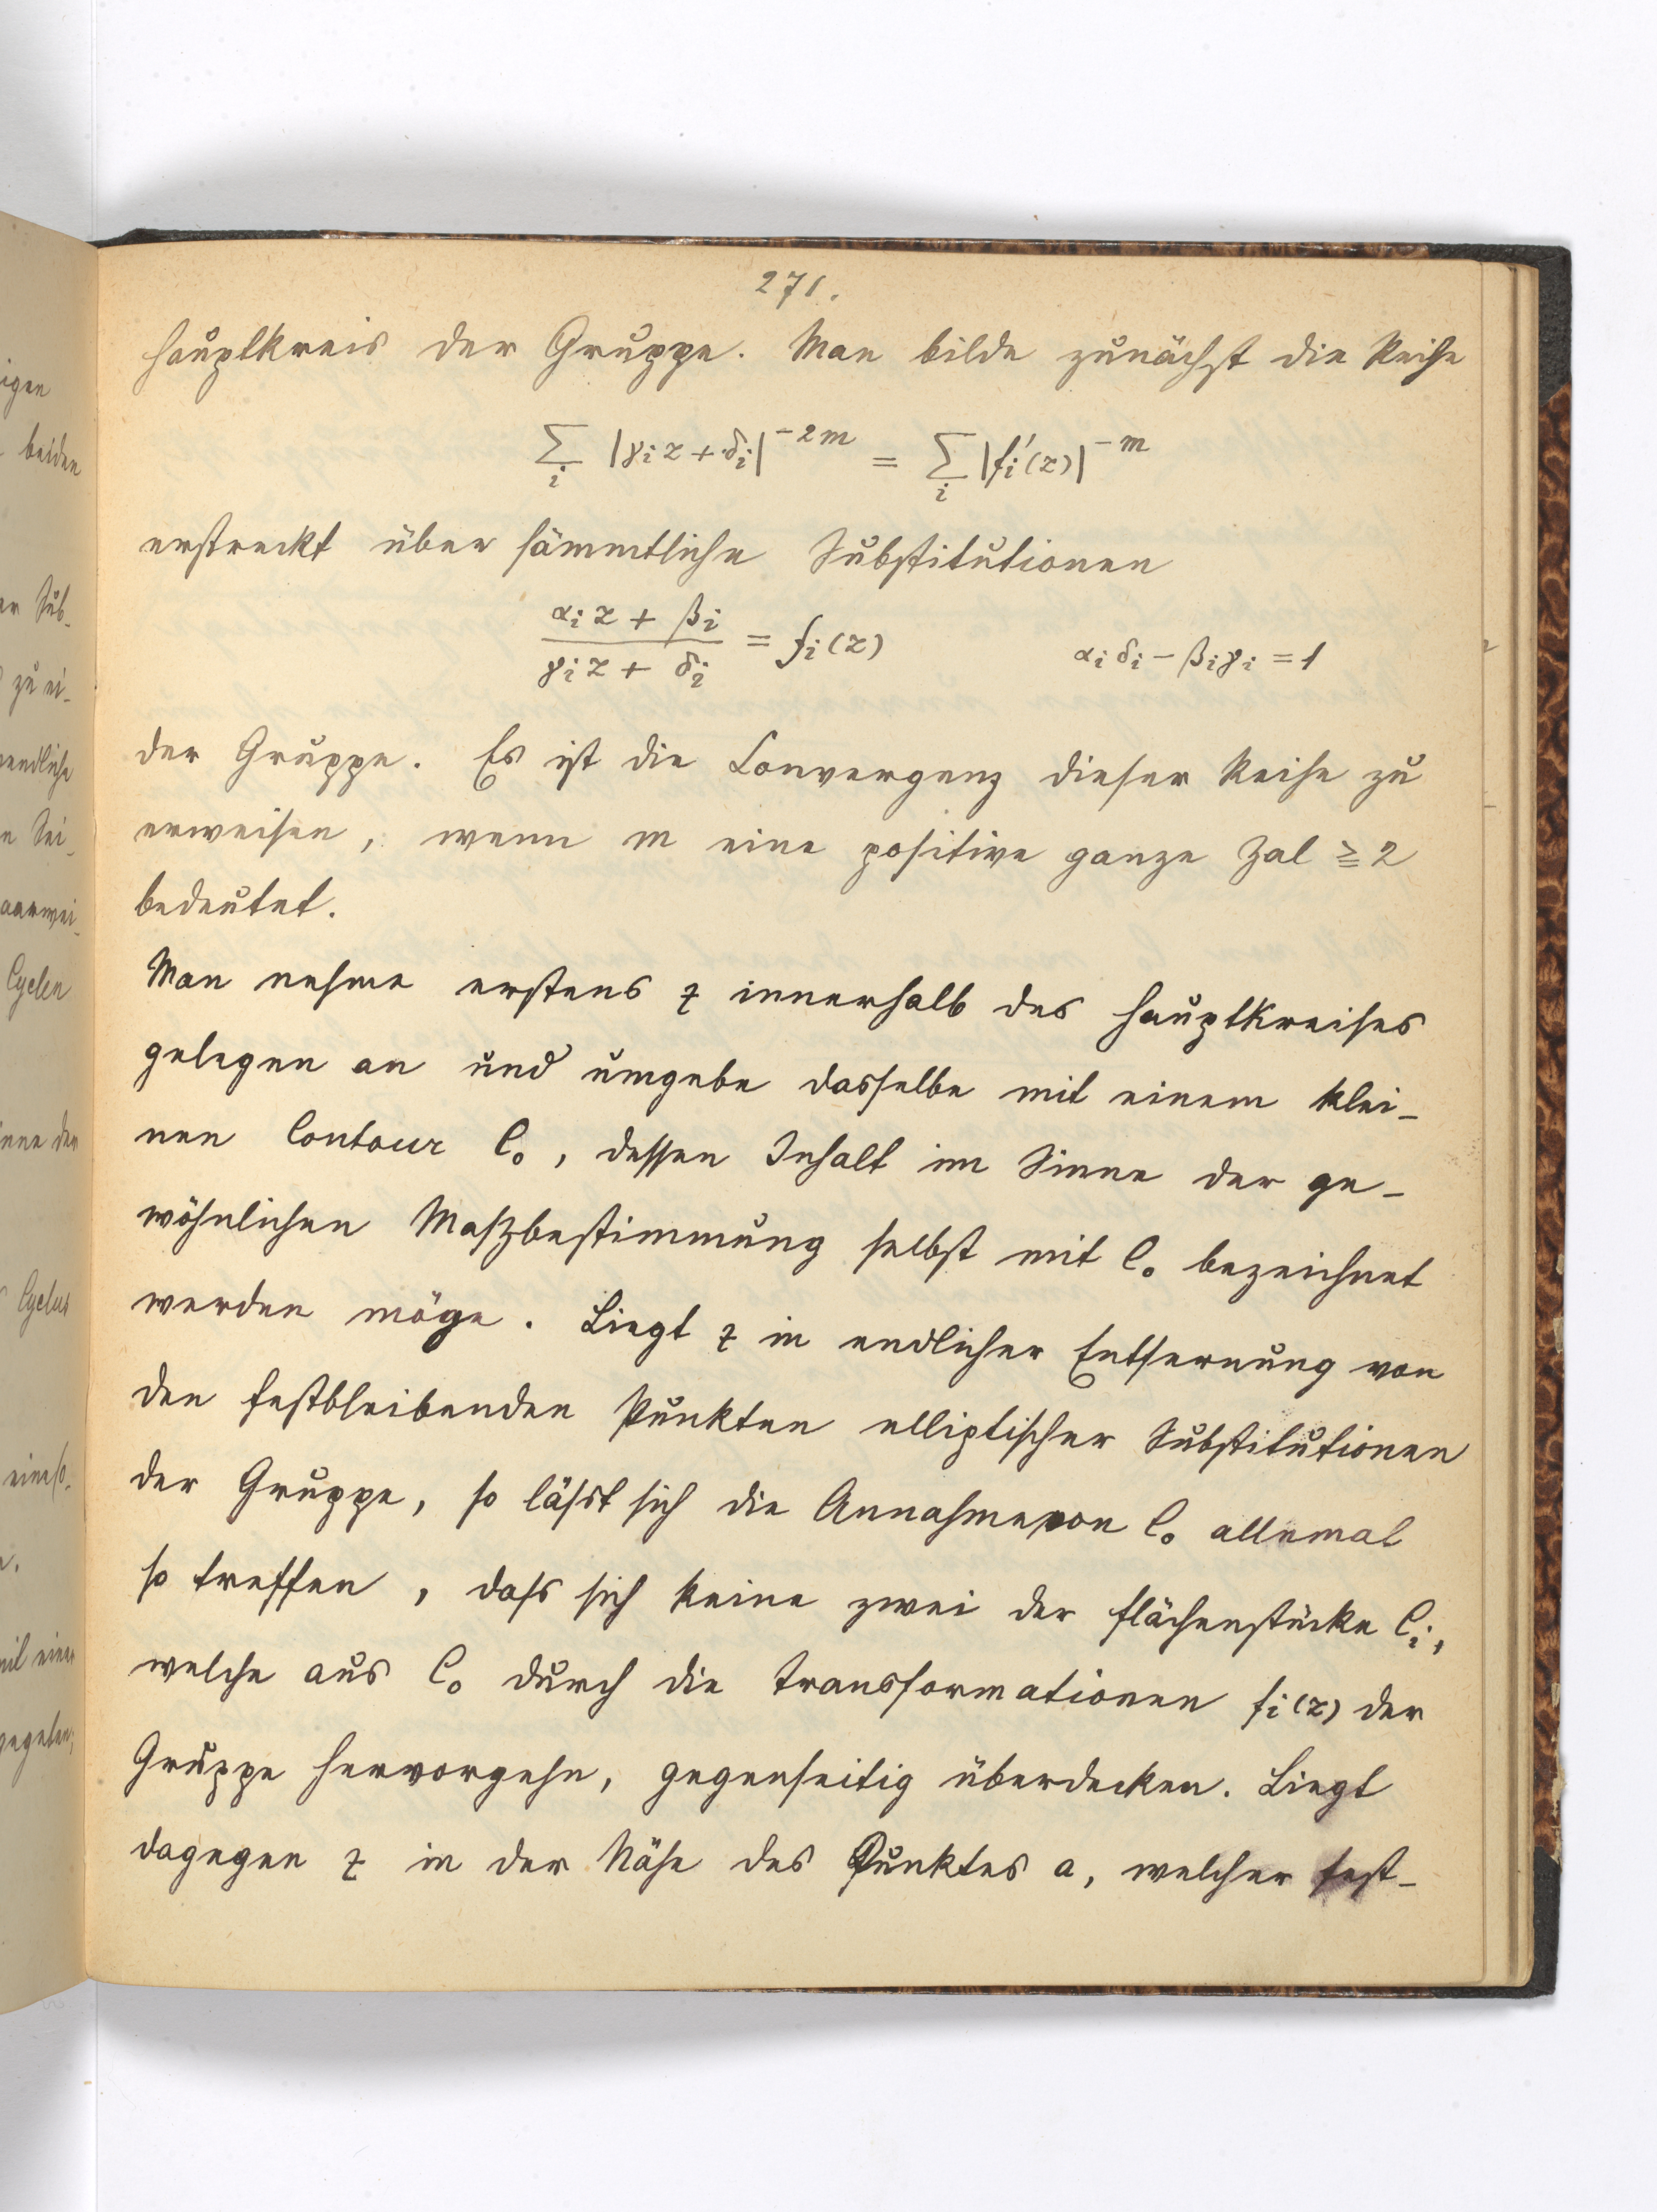 271.
Hauptkreis der Gruppe. Man bilde zunächst die Reihe
∑_i |γ_i z + δ_i|^{-2m} = ∑_i |f_i'(z)|^{-m}
erstreckt über sämmtliche Substitutionen
(α_i z + β_i)/(γ_i z + δ_i) = f_i(z)     α_i δ_i − β_i γ_i = 1
der Gruppe. Es ist die Convergenz dieser Reihe zu
erweisen, wenn m eine positive ganze Zal ≧ 2
bedeutet.
Man nehme erstens z innerhalb des Hauptkreises
gelegen an und umgebe dasselbe mit einem klei-
nen Contour C_0, dessen Inhalt im Sinne der ge-
wöhnlichen Maßbestimmung selbst mit C_0 bezeichnet
werden möge. Liegt z in endlicher Entfernung von
den festbleibenden Punkten elliptischer Substitutionen
der Gruppe, so lässt sich die Annahme von C_0 allemal
so treffen, dass sich keine zwei der Flächenstücke C_i,
welche aus C_0 durch die Transformationen f_i(z) der
Gruppe hervorgehn, gegenseitig überdecken. Liegt
dagegen z in der Nähe des Punktes a, welcher fest-
igen
beiden
er Sub-
zu ei-
endliche
e Sei-
aarwei-
Cyclen
inne der
Cyclus
mit einer
gegeben;